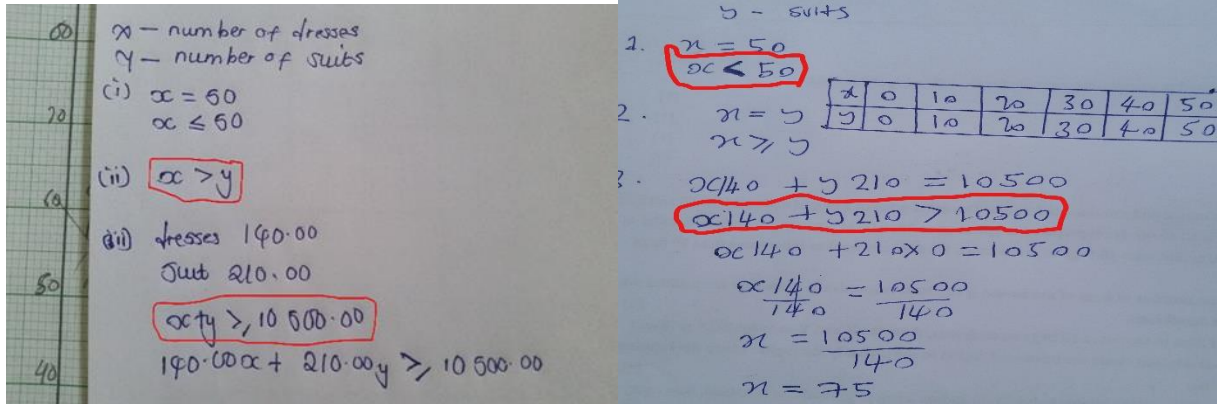 x – number of dresses
y – number of suits
(i) x = 50
x ≤ 50
(ii) x > y
(iii) dresses 140.00
Suit 210.00
x+y ≥ 10 500.00
140.00x + 210.00y ≥ 10 500.00
60
50
40
y - suits
1. x = 50
x < 50
2. x = y
x ≥ y
x 0 10 20 30 40 50
y 0 10 20 30 40 50
3. x140 + y 210 = 10500
x140 + y 210 > 10500
x140 + 210x0 = 10500
x140/140 = 10500/140
x = 10500/140
x = 75